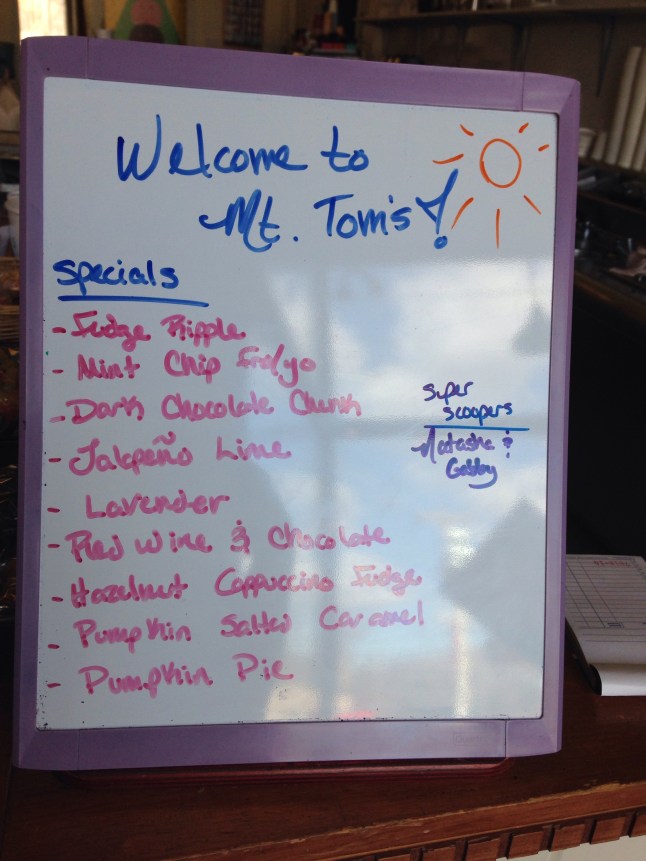 Welcome to
Mt. Tom's!
Specials
- Fudge Ripple
- Mint Chip Fro/yo
- Dark Chocolate Chunk
- Jalapeño Lime
- Lavender
- Red Wine & Chocolate
- Hazelnut Cappuccino Fudge
- Pumpkin Salted Caramel
- Pumpkin Pie
Super
Scoopers
Natasha &
Gabby